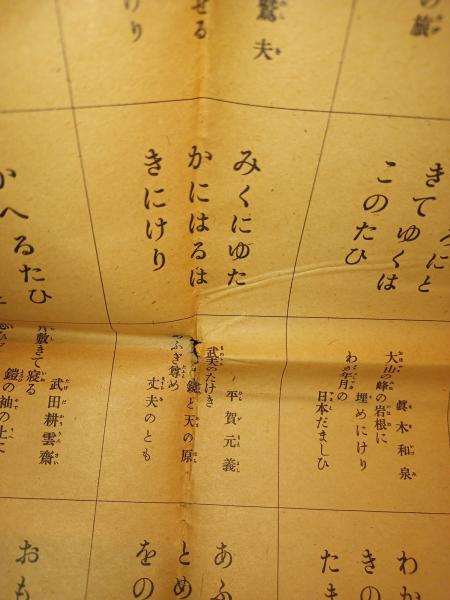 の旅
鷲夫
せる
けり
ろにと
きてゆくは
このたひ
みくにゆた
かにはるは
きにけり
かへるたひ
眞木和泉
大山の峰の岩根に
埋めにけり
わが年月の
日本だましひ
平賀元義
武夫のたけき
鏡と天の原
ふぎ尊め
丈夫のとも
武田耕雲齋
敷きて寝る
鎧の袖の上に
わか
きの
たま
あふ
とめ
をの
おも